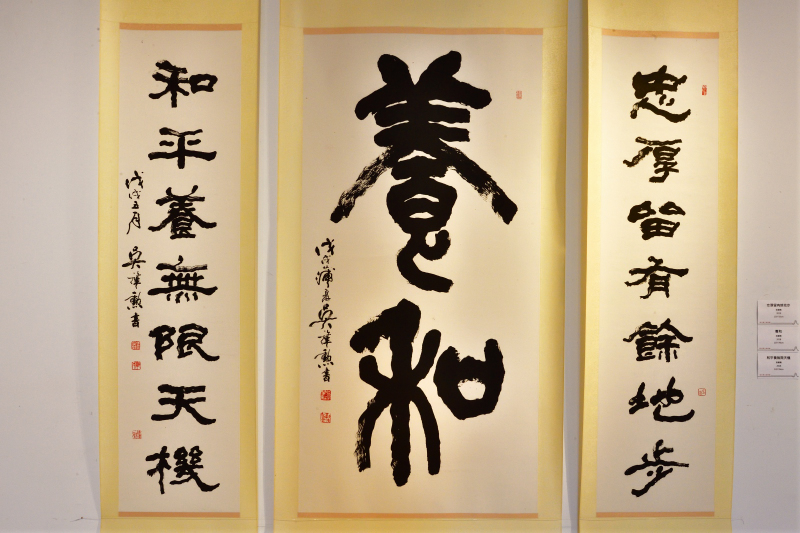 忠厚留有餘地步
養和
戊戌蒲月吳肇勲書
和平養無限天機
戊戌五月 吳肇勲書